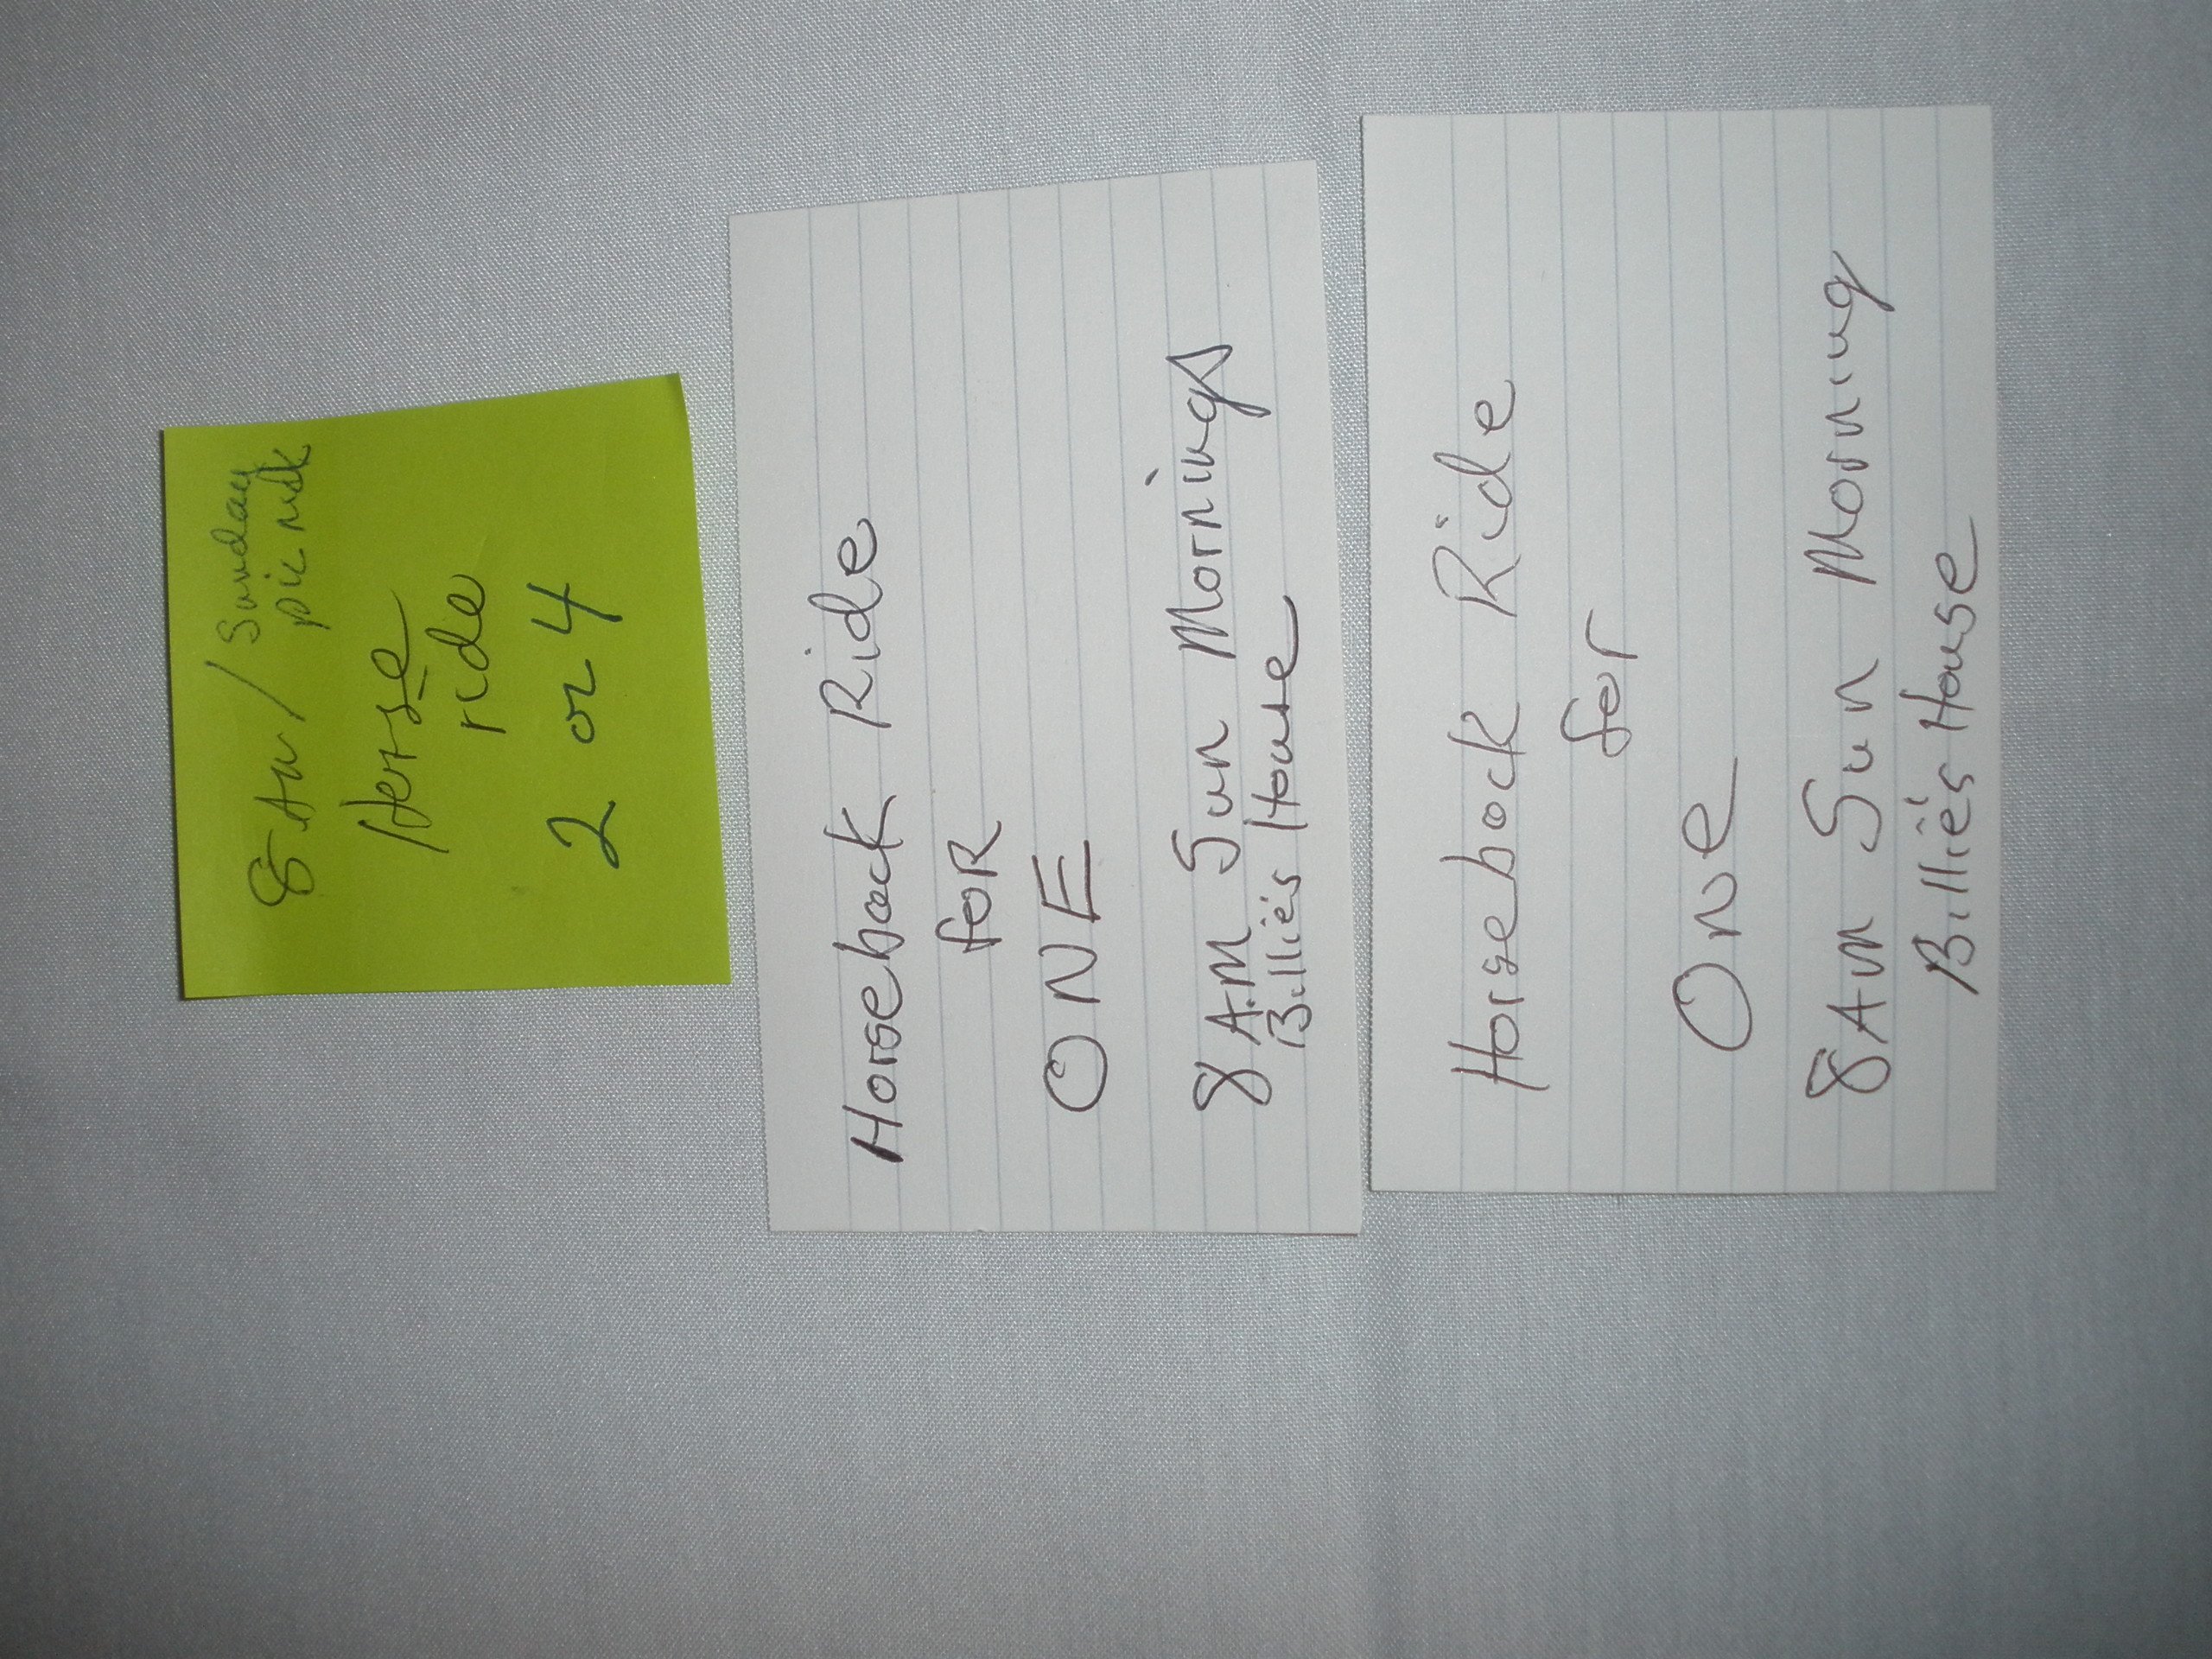 8 AM / Sunday
picnick
Horse
ride
2 or 4
Horseback Ride
foR
ONE
8 A.M Sun Mornings
Billie's House
Horseback Ride
for
One
8 AM Sun Morning
Billie's House